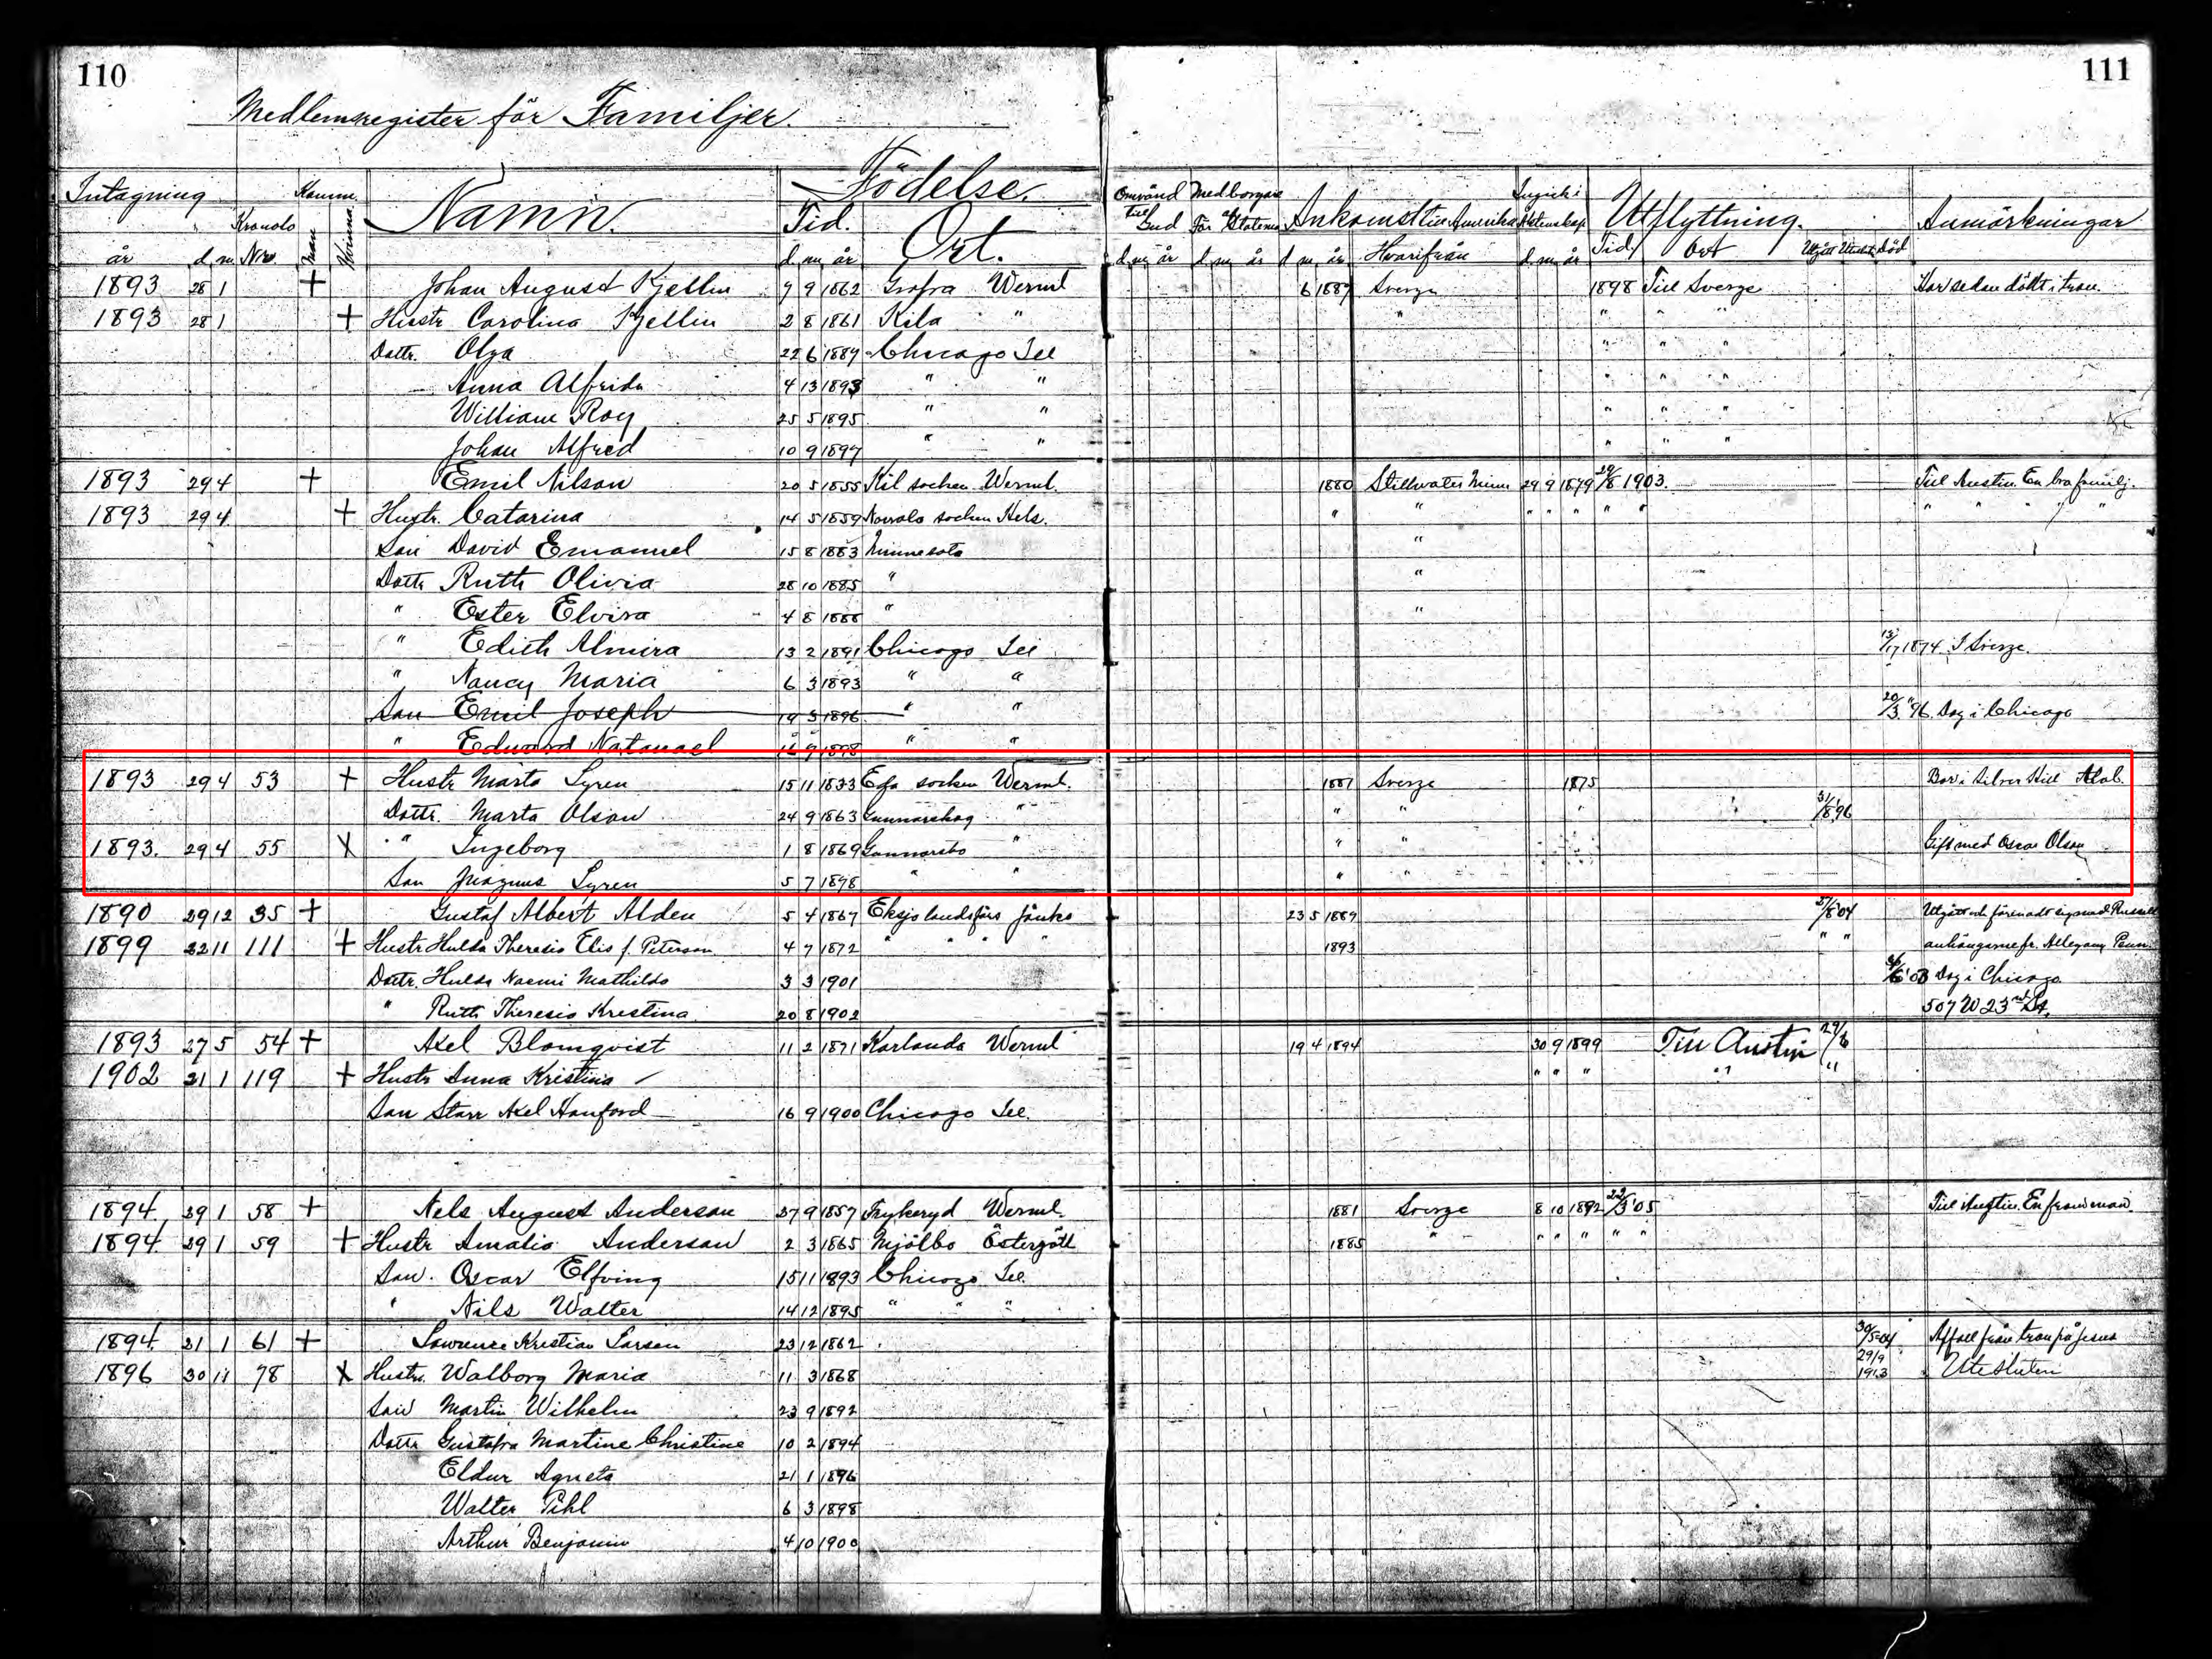 110
111
Medlemsregister för Familjer.
Intagning
Namn.
Födelse.
Ankomst till Amerika
Utflyttning.
Anmärkningar
år d. m. Nro. Man Kvinna Tid. Ort. Hvarifrån Tid Ort
1893 28 1 + Johan August Kjellin 9 9 1862 Grafva Werml 6 1887 Sverge 1898 Till Sverge Har sedan dött i tron.
1893 28 1 + Hustr Carolina Kjellin 2 8 1861 Kila " " " " "
Dottr. Olga 22 6 1889 Chicago Ill " " "
Anna Alfrida 4 13 1893 " " " " "
William Roy 25 5 1895 " " " " "
Johan Alfred 10 9 1897 " " " " "
1893 29 4 + Emil Nilson 20 5 1855 Kil socken Werml. 1880 Stillwater Minn 29 9 1879 1903. Till Austin. En bra familj.
1893 29 4 + Hustr. Catarina 14 5 1859 socken Hels. " " " " " " " " " " "
Son David Emanuel 15 8 1883 Minnesota "
Dottr Ruth Olivia 28 10 1885 " "
" Ester Elvira 4 8 1888 " "
" Edith Almira 13 2 1891 Chicago Ill 1874 I Sverge.
" Nancy Maria 6 3 1893 " "
Son Emil Joseph 19 3 1896 " " 20/3 "96. Dog i Chicago
" Edward Natanael 16 9 1898 " "
1893 29 4 53 + Hustr Märta Lyren 15 11 1833 Eda socken Werml. 1887 Sverge 1875 Bor i Silver Hill Alab.
Dottr. Marta Olson 24 9 1863 Gunnarskog " " " " 31/8 96
1893. 29 4 55 X " Ingeborg 1 8 1869 Gunnarsbo " " " Gift med Oscar Olson
Son Magnus Lyren 5 7 1898 " " " "
1890 29 12 35 + Gustaf Albert Alden 5 4 1867 Eksjö landsförs Jönkö 23 5 1889 04 Utgått och förenadt sig med Russell
1899 22 11 111 + Hustr Hulda Theresia Elis f. Peterson 4 7 1872 " " " " 1893 " " anhängarne fr. Allegany Penn
Dottr. Hulda Naemi Mathilda 3 3 1901 03 Dog i Chicago.
" Ruth Theresia Kristina 20 8 1902 507 W 23rd St.
1893 27 5 54 + Axel Blomqvist 11 2 1871 Karlanda Werml 19 4 1894 30 9 1899 Till Austin
1902 21 1 119 + Hustr Anna Kristina " " " " "
Son Starr Axel Hanford 16 9 1900 Chicago Ill.
1894. 29 1 58 + Nels August Anderson 27 9 1857 Frykeryd Werml. 1881 Sverge 8 10 1892 22/3 '05 Till Austin. En from man
1894. 29 1 59 + Hustr Amalia Anderson 2 3 1865 Mjölbo Östergött 1885 " " " " " "
Son. Oscar Elfving 15 11 1893 Chicago Ill.
" Nils Walter 14 12 1895 " " "
1894. 21 1 61 + Lawrence Kristian Larson 23 12 1862 30/5-04 Affall från tron på Jesus
1896 30 11 78 X Hustr. Walborg Maria 11 3 1868 29/9 1913 Utesluten
Son Martin Wilhelm 23 9 1892
Dottr Gustafva Martine Christine 10 2 1894
Eldur Agneta 21 1 1896
Walter Pihl 6 3 1898
Arthur Benjamin 4 10 1900